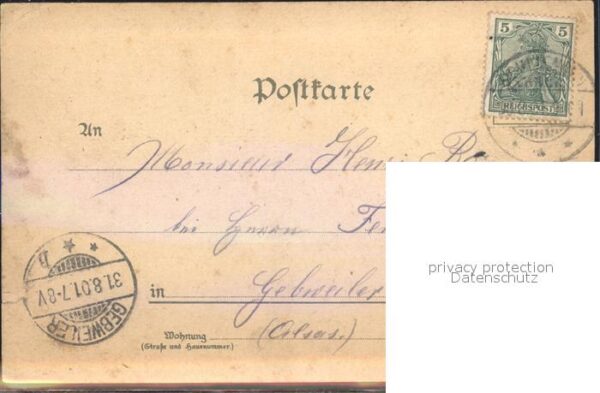 5 5
REICHSPOST
Postkarte
An
Monsieur Henri
bei Herrn
privacy protection
Datenschutz
in Gebweiler
(Alsas.)
Wohnung
(Straße und Hausnummer.)
B
31.8.01.7-8V
GEBWEILER